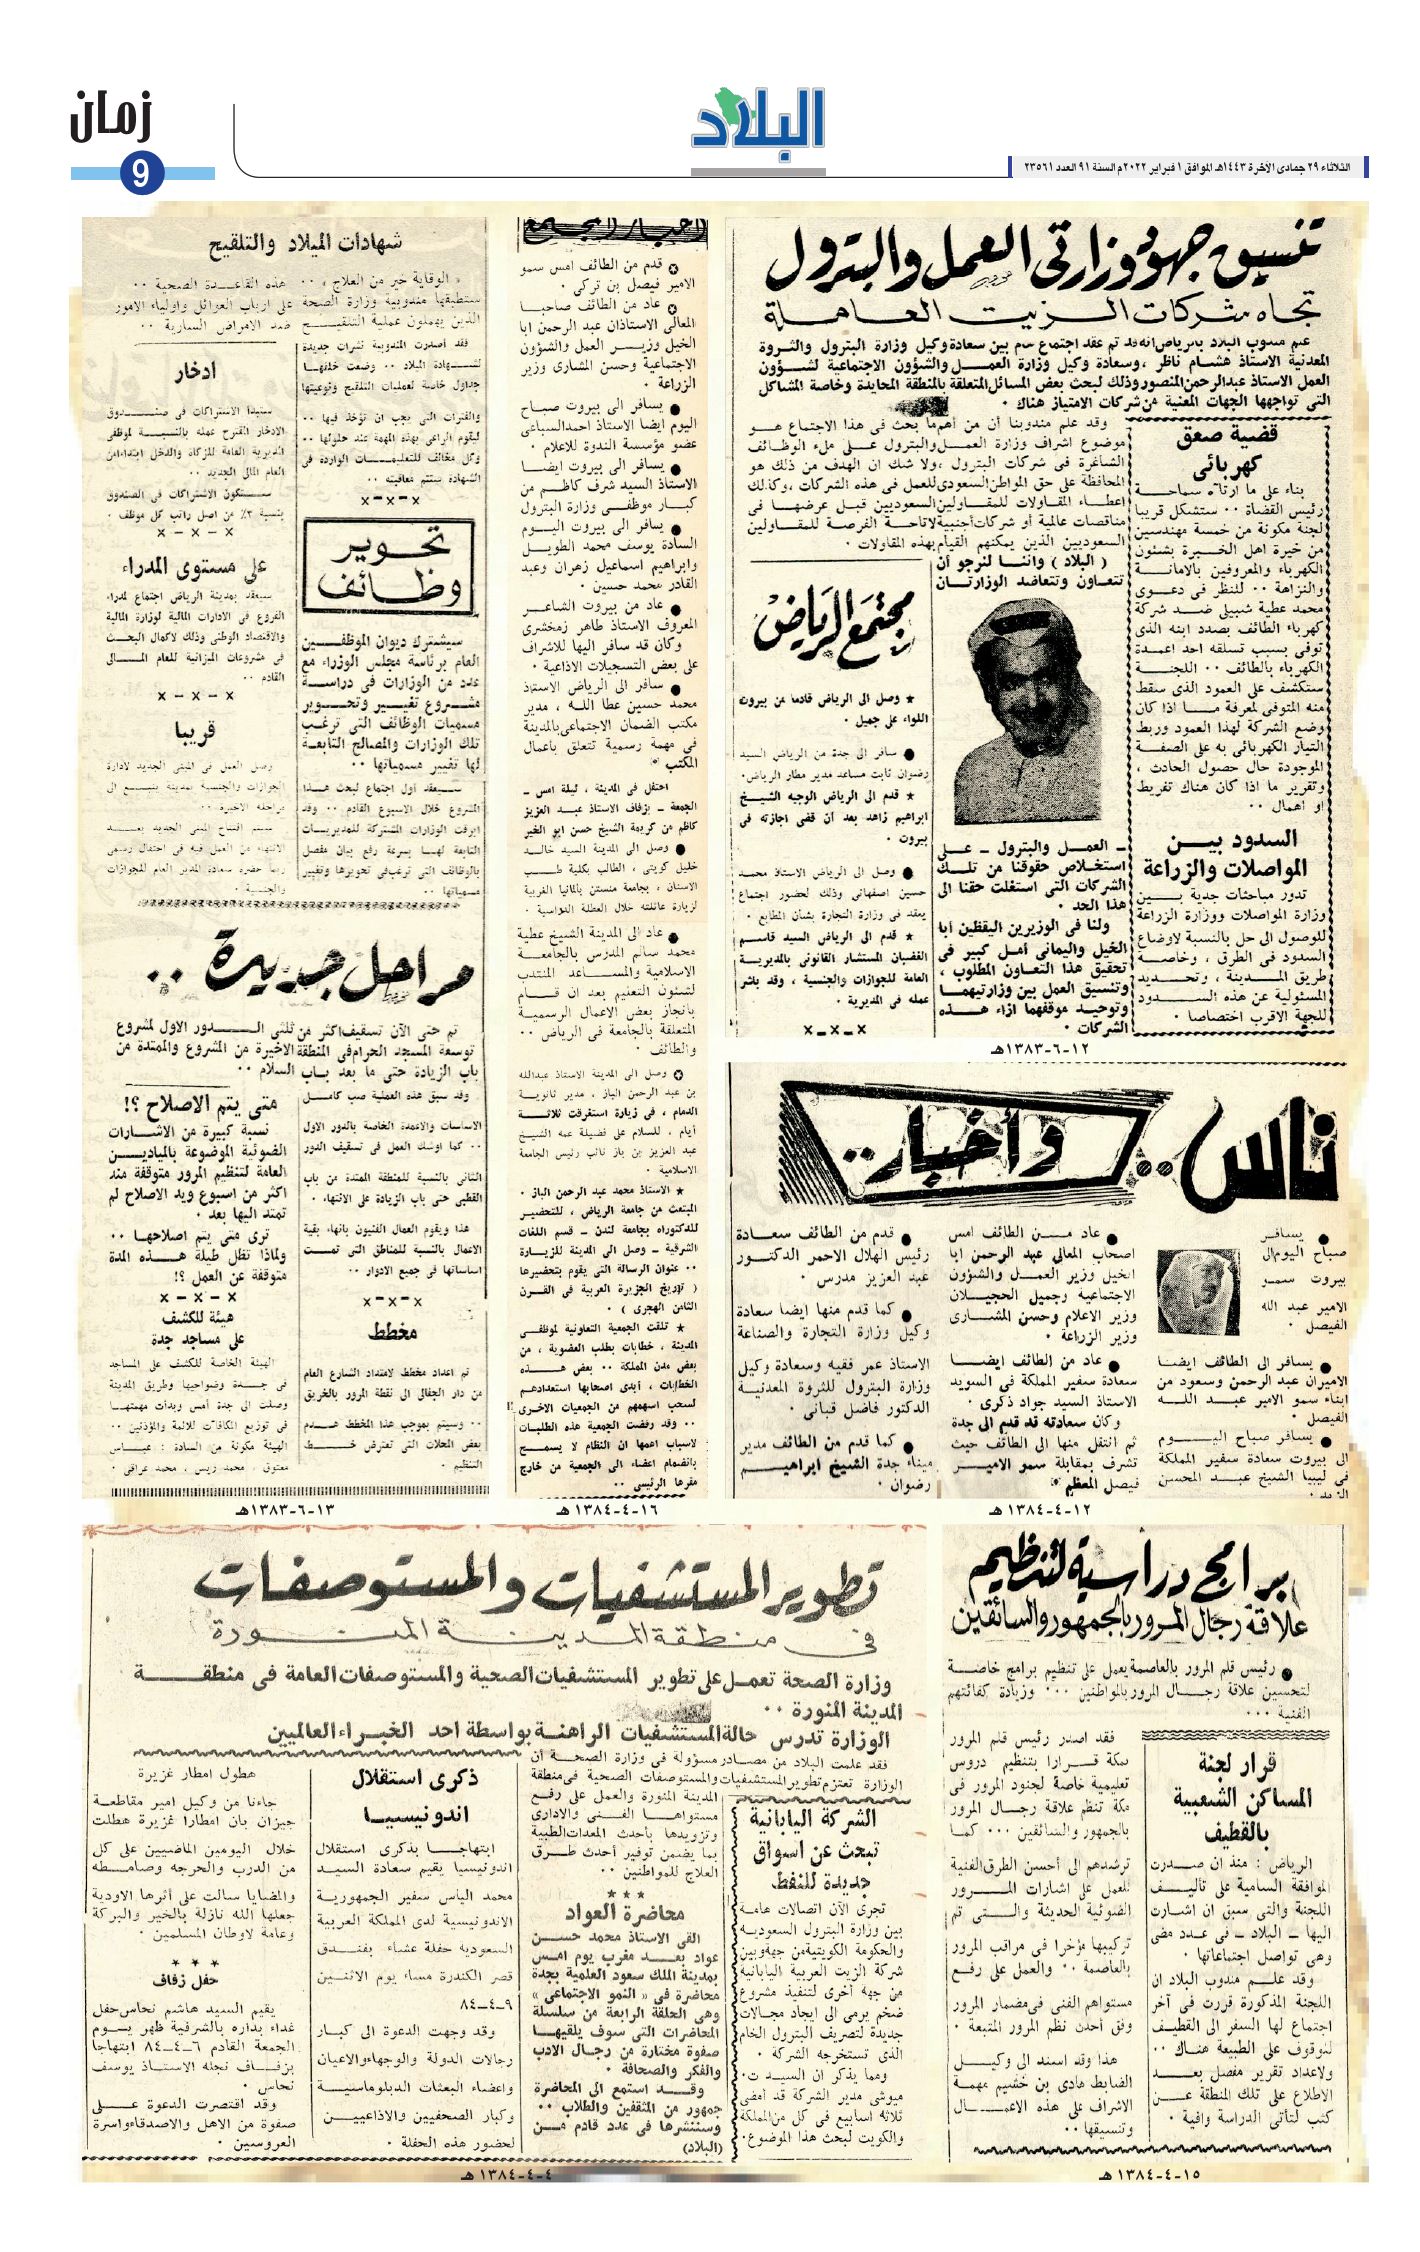 زمان
9
البلاد
الثلاثاء ٢٩ جمادى الآخرة ١٤٤٣هـ الموافق ١ فبراير ٢٠٢٢م السنة ٩١ العدد ٢٣٥٦١
تنسيق جهود وزارتي العمل والبترول
تجاه شركات الزيت العاملة
علم مندوب البلاد بالرياض انه قد تم عقد اجتماع هام بين سعادة وكيل وزارة البترول والثروة
المعدنية الاستاذ هشام ناظر ، وسعادة وكيل وزارة العمل والشؤون الاجتماعية لشؤون
العمل الاستاذ عبدالرحمن المنصور وذلك لبحث بعض المسائل المتعلقة بالمنطقة المحايدة وخاصة المشاكل
التي تواجهها الجهات المعنية من شركات الامتياز هناك .
وقد علم مندوبنا أن من أهم ما بحث في هذا الاجتماع هو
موضوع اشراف وزارة العمل والبترول على ملء الوظائف
الشاغرة في شركات البترول ، ولا شك ان الهدف من ذلك هو
المحافظة على حق المواطن السعودي للعمل في هذه الشركات ، وكذلك
اعطاء المقاولات للمقاولين السعوديين قبل عرضها في
مناقصات عالمية أو شركات أجنبية لاتاحة الفرصة للمقاولين
السعوديين الذين يمكنهم القيام بهذه المقاولات .
( البلاد ) واننا لنرجو أن
تتعاون وتتعاضد الوزارتان
- العمل والبترول - على
استخلاص حقوقنا من تلك
الشركات التي استغلت حقنا الى
هذا الحد .
ولنا في الوزيرين اليقظين أبا
الخيل واليماني أمل كبير في
تحقيق هذا التعاون المطلوب ،
وتنسيق العمل بين وزارتيهما
وتوحيد موقفهما ازاء هذه
الشركات .
قضية صعق
كهربائي
بناء على ما ارتآه سماحة
رئيس القضاة .. ستشكل قريبا
لجنة مكونة من خمسة مهندسين
من خيرة اهل الخبرة بشئون
الكهرباء والمعروفين بالامانة
والنزاهة .. للنظر في دعوى
محمد عطية شبيلي ضد شركة
كهرباء الطائف بصدد ابنه الذي
توفى بسبب تسلقه احد اعمدة
الكهرباء بالطائف .. اللجنة
ستكشف على العمود الذي سقط
منه المتوفى لمعرفة ما اذا كان
وضع الشركة لهذا العمود وربط
التيار الكهربائي به على الصفة
الموجودة حال حصول الحادث ،
وتقرير ما اذا كان هناك تفريط
او اهمال ..
السدود بين
المواصلات والزراعة
تدور مباحثات جدية بين
وزارة المواصلات ووزارة الزراعة
للوصول الى حل بالنسبة لاوضاع
السدود في الطرق ، وخاصة
طريق المدينة ، وتحديد
المسئولية عن هذه السدود
للجهة الاقرب اختصاصا .
مجتمع الرياض
★ وصل الى الرياض قادما من بيروت
اللواء علي جميل .
● سافر الى جدة من الرياض السيد
رضوان ثابت مساعد مدير مطار الرياض.
★ قدم الى الرياض الوجيه الشيخ
ابراهيم زاهد بعد أن قضى اجازته في
بيروت .
● وصل الى الرياض الاستاذ محمد
حسين اصفهاني وذلك لحضور اجتماع
يعقد في وزارة التجارة بشأن المطابع .
★ قدم الى الرياض السيد قاسم
الغضبان المستشار القانوني بالمديرية
العامة للجوازات والجنسية ، وقد باشر
عمله في المديرية .
x-x-x
١٢-٦-١٣٨٣هـ
اخبار المجتمع
✪ قدم من الطائف امس سمو
الامير فيصل بن تركي .
✪ عاد من الطائف صاحبا
المعالي الاستاذان عبد الرحمن ابا
الخيل وزير العمل والشؤون
الاجتماعية وحسن المشاري وزير
الزراعة .
● يسافر الى بيروت صباح
اليوم ايضا الاستاذ احمد السباعي
عضو مؤسسة الندوة للاعلام .
● يسافر الى بيروت ايضا
الاستاذ السيد شرف كاظم من
كبار موظفي وزارة البترول
● يسافر الى بيروت اليوم
السادة يوسف محمد الطويل
وابراهيم اسماعيل زهران وعبد
القادر محمد حسين .
● عاد من بيروت الشاعر
المعروف الاستاذ طاهر زمخشري
وكان قد سافر اليها للاشراف
على بعض التسجيلات الاذاعية .
● سافر الى الرياض الاستاذ
محمد حسين عطا الله ، مدير
مكتب الضمان الاجتماعي بالمدينة
في مهمة رسمية تتعلق باعمال
المكتب .
احتفل في المدينة ، ليلة امس -
الجمعة - بزفاف الاستاذ عبد العزيز
كاظم من كريمة الشيخ حسن ابو الخير
● وصل الى المدينة السيد خالد
خليل كويتي ، الطالب بكلية طب
الاسنان ، بجامعة منستن بالمانيا الغربية
لزيارة عائلته خلال العطلة الدراسية .
● عاد الى المدينة الشيخ عطية
محمد سالم المدرس بالجامعة
الاسلامية والمساعد المنتدب
لشئون التعليم بعد ان قام
بانجاز بعض الاعمال الرسمية
المتعلقة بالجامعة في الرياض ..
والطائف .
✪ وصل الى المدينة الاستاذ عبدالله
بن عبد الرحمن الباز ، مدير ثانوية
الدمام ، في زيارة استغرقت ثلاثة
أيام ، للسلام على فضيلة عمه الشيخ
عبد العزيز بن باز نائب رئيس الجامعة
الاسلامية .
★ الاستاذ محمد عبد الرحمن الباز .
المبتعث من جامعة الرياض ، للتحضير
للدكتوراه بجامعة لندن - قسم اللغات
الشرقية - وصل الى المدينة للزيارة
.. عنوان الرسالة التي يقوم بتحضيرها
( تاريخ الجزيرة العربية في القرن
الثامن الهجري ) .
★ تلقت الجمعية التعاونية لموظفي
المدينة ، خطابات بطلب العضوية ، من
بعض مدن المملكة .. بعض هذه
الخطابات ، أبدى اصحابها استعدادهم
لسحب اسهمهم من الجمعيات الاخرى
.. وقد رفضت الجمعية هذه الطلبات
لاسباب اهمها ان النظام لا يسمح
بانضمام اعضاء الى الجمعية من خارج
مقرها الرئيسي ..
١٦-٤-١٣٨٤ هـ
شهادات الميلاد والتلقيح
« الوقاية خير من العلاج ، .. هذه القاعدة الصحية ..
ستطبقها مندوبية وزارة الصحة على ارباب العوائل واولياء الامور
الذين يهملون عملية التلقيح ضد الامراض السارية ..
فقد أصدرت المندوبية نشرات جديدة
لشهادة الميلاد .. وضعت خلفها
جداول خاصة لعمليات التلقيح وتوعيتها
والفترات التي يجب ان تؤخذ فيها ..
ليقوم الراعي بهذه المهمة عند حلولها ..
وكل مخالف للتعليمات الواردة في
الشهادة ستتم معاقبته ..
x-x-x
ادخار
ستبدأ الاشتراكات في صندوق
الادخار المقترح عمله بالنسبة لموظفي
المديرية العامة للزكاة والدخل ابتداء من
العام المالي الجديد ..
ستكون الاشتراكات في الصندوق
بنسبة ٢٪ من اصل راتب كل موظف .
x - x - x
على مستوى المدراء
سيعقد بمدينة الرياض اجتماع لمدراء
الفروع في الادارات المالية لوزارة المالية
والاقتصاد الوطني وذلك لاكمال البحث
في مشروعات الميزانية للعام المالي
القادم ..
x - x - x
قريبا
وصل العمل في المبنى الجديد لادارة
الجوازات والجنسية بمدينة ينبع الى
مراحله الاخيرة ..
سيتم افتتاح المبنى الجديد بعد
الانتهاء من العمل فيه في احتفال رسمي
سعادة المدير العام للجوازات
والجنسية .
تحوير
وظائف
سيشترك ديوان الموظفين
العام برئاسة مجلس الوزراء مع
عدد من الوزارات في دراسة
مشروع تغيير وتحوير
مسميات الوظائف التي ترغب
تلك الوزارات والمصالح التابعة
لها تغيير مسمياتها ..
سيعقد أول اجتماع لبحث هذا
المشروع خلال الاسبوع القادم .. وقد
ابرقت الوزارات المشتركة للمديريات
التابعة لها بسرعة رفع بيان مفصل
بالوظائف التي ترغب في تحويرها وتغيير
مسمياتها ..
مراحل جديدة ..
تم حتى الآن تسقيف اكثر من ثلثي الدور الاول لمشروع
توسعة المسجد الحرام في المنطقة الاخيرة من المشروع والممتدة من
باب الزيادة حتى ما بعد باب السلام ..
وقد سبق هذه العملية صب كامل
الاساسات والاعمدة الخاصة بالدور الاول
.. كما اوشك العمل في تسقيف الدور
الثاني بالنسبة للمنطقة الممتدة من باب
القطبي حتى باب الزيادة على الانتهاء .
هذا ويقوم العمال الفنيون بانهاء بقية
الاعمال بالنسبة للمناطق التي تمت
اساساتها في جميع الادوار ..
x-x-x
مخطط
تم اعداد مخطط لامتداد الشارع العام
من دار الجفالي الى نقطة المرور بالخريق
.. وسيتم بموجب هذا المخطط هدم
بعض المحلات التي تعترض خط
التنظيم .
متى يتم الاصلاح ؟!
نسبة كبيرة من الاشارات
الضوئية الموضوعة بالميادين
العامة لتنظيم المرور متوقفة منذ
اكثر من اسبوع ويد الاصلاح لم
تمتد اليها بعد .
ترى متى يتم اصلاحها ..
ولماذا تظل طيلة هذه المدة
متوقفة عن العمل ؟!
x - x - x
هيئة للكشف
على مساجد جدة
الهيئة الخاصة للكشف على المساجد
في جدة وضواحيها وطريق المدينة
وصلت الى جدة أمس وبدأت مهمتها
في توزيع المكافآت للائمة والمؤذنين ..
الهيئة مكونة من السادة : عباس
معتوق ، محمد ريس ، محمد عراقي .
١٣-٦-١٣٨٣هـ
ناس .. وأخبار ..
● يسافر
صباح اليوم الى
بيروت سمو
الامير عبد الله
الفيصل .
● يسافر الى الطائف ايضا
الاميران عبد الرحمن وسعود من
ابناء سمو الامير عبد الله
الفيصل .
● يسافر صباح اليوم
الى بيروت سعادة سفير المملكة
في ليبيا الشيخ عبد المحسن
الزيد .
● عاد من الطائف امس
اصحاب المعالي عبد الرحمن ابا
الخيل وزير العمل والشؤون
الاجتماعية وجميل الحجيلان
وزير الاعلام وحسن المشاري
وزير الزراعة .
● عاد من الطائف ايضا
سعادة سفير المملكة في السويد
الاستاذ السيد جواد ذكري .
وكان سعادته قد قدم الى جدة
ثم انتقل منها الى الطائف حيث
تشرف بمقابلة سمو الامير
فيصل المعظم .
● قدم من الطائف سعادة
رئيس الهلال الاحمر الدكتور
عبد العزيز مدرس .
● كما قدم منها ايضا سعادة
وكيل وزارة التجارة والصناعة
الاستاذ عمر فقيه وسعادة وكيل
وزارة البترول للثروة المعدنية
الدكتور فاضل قباني .
● كما قدم من الطائف مدير
ميناء جدة الشيخ ابراهيم
رضوان .
١٢-٤-١٣٨٤ هـ
تطوير المستشفيات والمستوصفات
في منطقة المدينة المنورة
وزارة الصحة تعمل على تطوير المستشفيات الصحية والمستوصفات العامة في منطقة
المدينة المنورة ..
الوزارة تدرس حالة المستشفيات الراهنة بواسطة احد الخبراء العالميين
فقد علمت البلاد من مصادر مسؤولة في وزارة الصحة أن
الوزارة تعتزم تطوير المستشفيات والمستوصفات الصحية في منطقة
المدينة المنورة والعمل على رفع
مستواها الفني والاداري
وتزويدها بأحدث المعدات الطبية
بما يضمن توفير أحدث طرق
العلاج للمواطنين ..
★★★
محاضرة العواد
القى الاستاذ محمد حسن
عواد بعد مغرب يوم امس
بمدينة الملك سعود العلمية بجدة
محاضرة في « النمو الاجتماعي »
وهي الحلقة الرابعة من سلسلة
المحاضرات التي سوف يلقيها
صفوة مختارة من رجال الادب
والفكر والصحافة .
وقد استمع الى المحاضرة
جمهور من المثقفين والطلاب ..
وسننشرها في عدد قادم من
(البلاد)
الشركة اليابانية
تبحث عن اسواق
جديدة للنفط
تجرى الآن اتصالات هامة
بين وزارة البترول السعودية
والحكومة الكويتية من جهة وبين
شركة الزيت العربية اليابانية
من جهة أخرى لتنفيذ مشروع
ضخم يرمي الى ايجاد مجالات
جديدة لتصريف البترول الخام
الذي تستخرجه الشركة .
ومما يذكر ان السيد ت.
ميوشي مدير الشركة قد أمضى
ثلاثة اسابيع في كل من المملكة
والكويت لبحث هذا الموضوع.
ذكرى استقلال
اندونيسيا
ابتهاجا بذكرى استقلال
اندونيسيا يقيم سعادة السيد
محمد الياس سفير الجمهورية
الاندونيسية لدى المملكة العربية
السعودية حفلة عشاء بفندق
قصر الكندرة مساء يوم الاثنين
٩-٤-٨٤
وقد وجهت الدعوة الى كبار
رجالات الدولة والوجهاء والاعيان
واعضاء البعثات الدبلوماسية
وكبار الصحفيين والاذاعيين
لحضور هذه الحفلة .
هطول امطار غزيرة
جاءنا من وكيل امير مقاطعة
جيزان بان امطارا غزيرة هطلت
خلال اليومين الماضيين على كل
من الدرب والحرجه وصامطه
والمضايا سالت على أثرها الاودية
جعلها الله نازلة بالخير والبركة
وعامة لاوطان المسلمين .
★ ★ ★
حفل زفاف
يقيم السيد هاشم نحاس حفل
غداء بداره بالشرفية ظهر يوم
الجمعة القادم ٦-٤-٨٤ ابتهاجا
بزفاف نجله الاستاذ يوسف
نحاس .
وقد اقتصرت الدعوة على
صفوة من الاهل والاصدقاء واسرة
العروسين .
٤-٤-١٣٨٤ هـ
برامج دراسية لتنظيم
علاقة رجال المرور بالجمهور والسائقين
● رئيس قلم المرور بالعاصمة يعمل على تنظيم برامج خاصة
لتحسين علاقة رجال المرور بالمواطنين ... وزيادة كفائتهم
الفنية ...
فقد اصدر رئيس قلم المرور
بمكة قرارا بتنظيم دروس
تعليمية خاصة لجنود المرور في
مكة تنظم علاقة رجال المرور
بالجمهور والسائقين ... كما
ترشدهم الى أحسن الطرق الفنية
للعمل على اشارات المرور
الضوئية الحديثة والتي تم
تركيبها مؤخرا في مراقب المرور
بالعاصمة .. والعمل على رفع
مستواهم الفني في مضمار المرور
وفق أحدث نظم المرور المتبعة .
هذا وقد اسند الى وكيل
الضابط هادي بن خشيم مهمة
الاشراف على هذه الاعمال
وتنسيقها ..
قرار لجنة
المساكن الشعبية
بالقطيف
الرياض : منذ ان صدرت
الموافقة السامية على تأليف
اللجنة والتي سبق ان اشارت
اليها - البلاد - في عدد مضى
وهي تواصل اجتماعاتها .
وقد علم مندوب البلاد ان
اللجنة المذكورة قررت في آخر
اجتماع لها السفر الى القطيف
للوقوف على الطبيعة هناك ..
ولاعداد تقرير مفصل بعد
الاطلاع على تلك المنطقة عن
كتب لتأتي الدراسة وافية .
١٥-٤-١٣٨٤ هـ